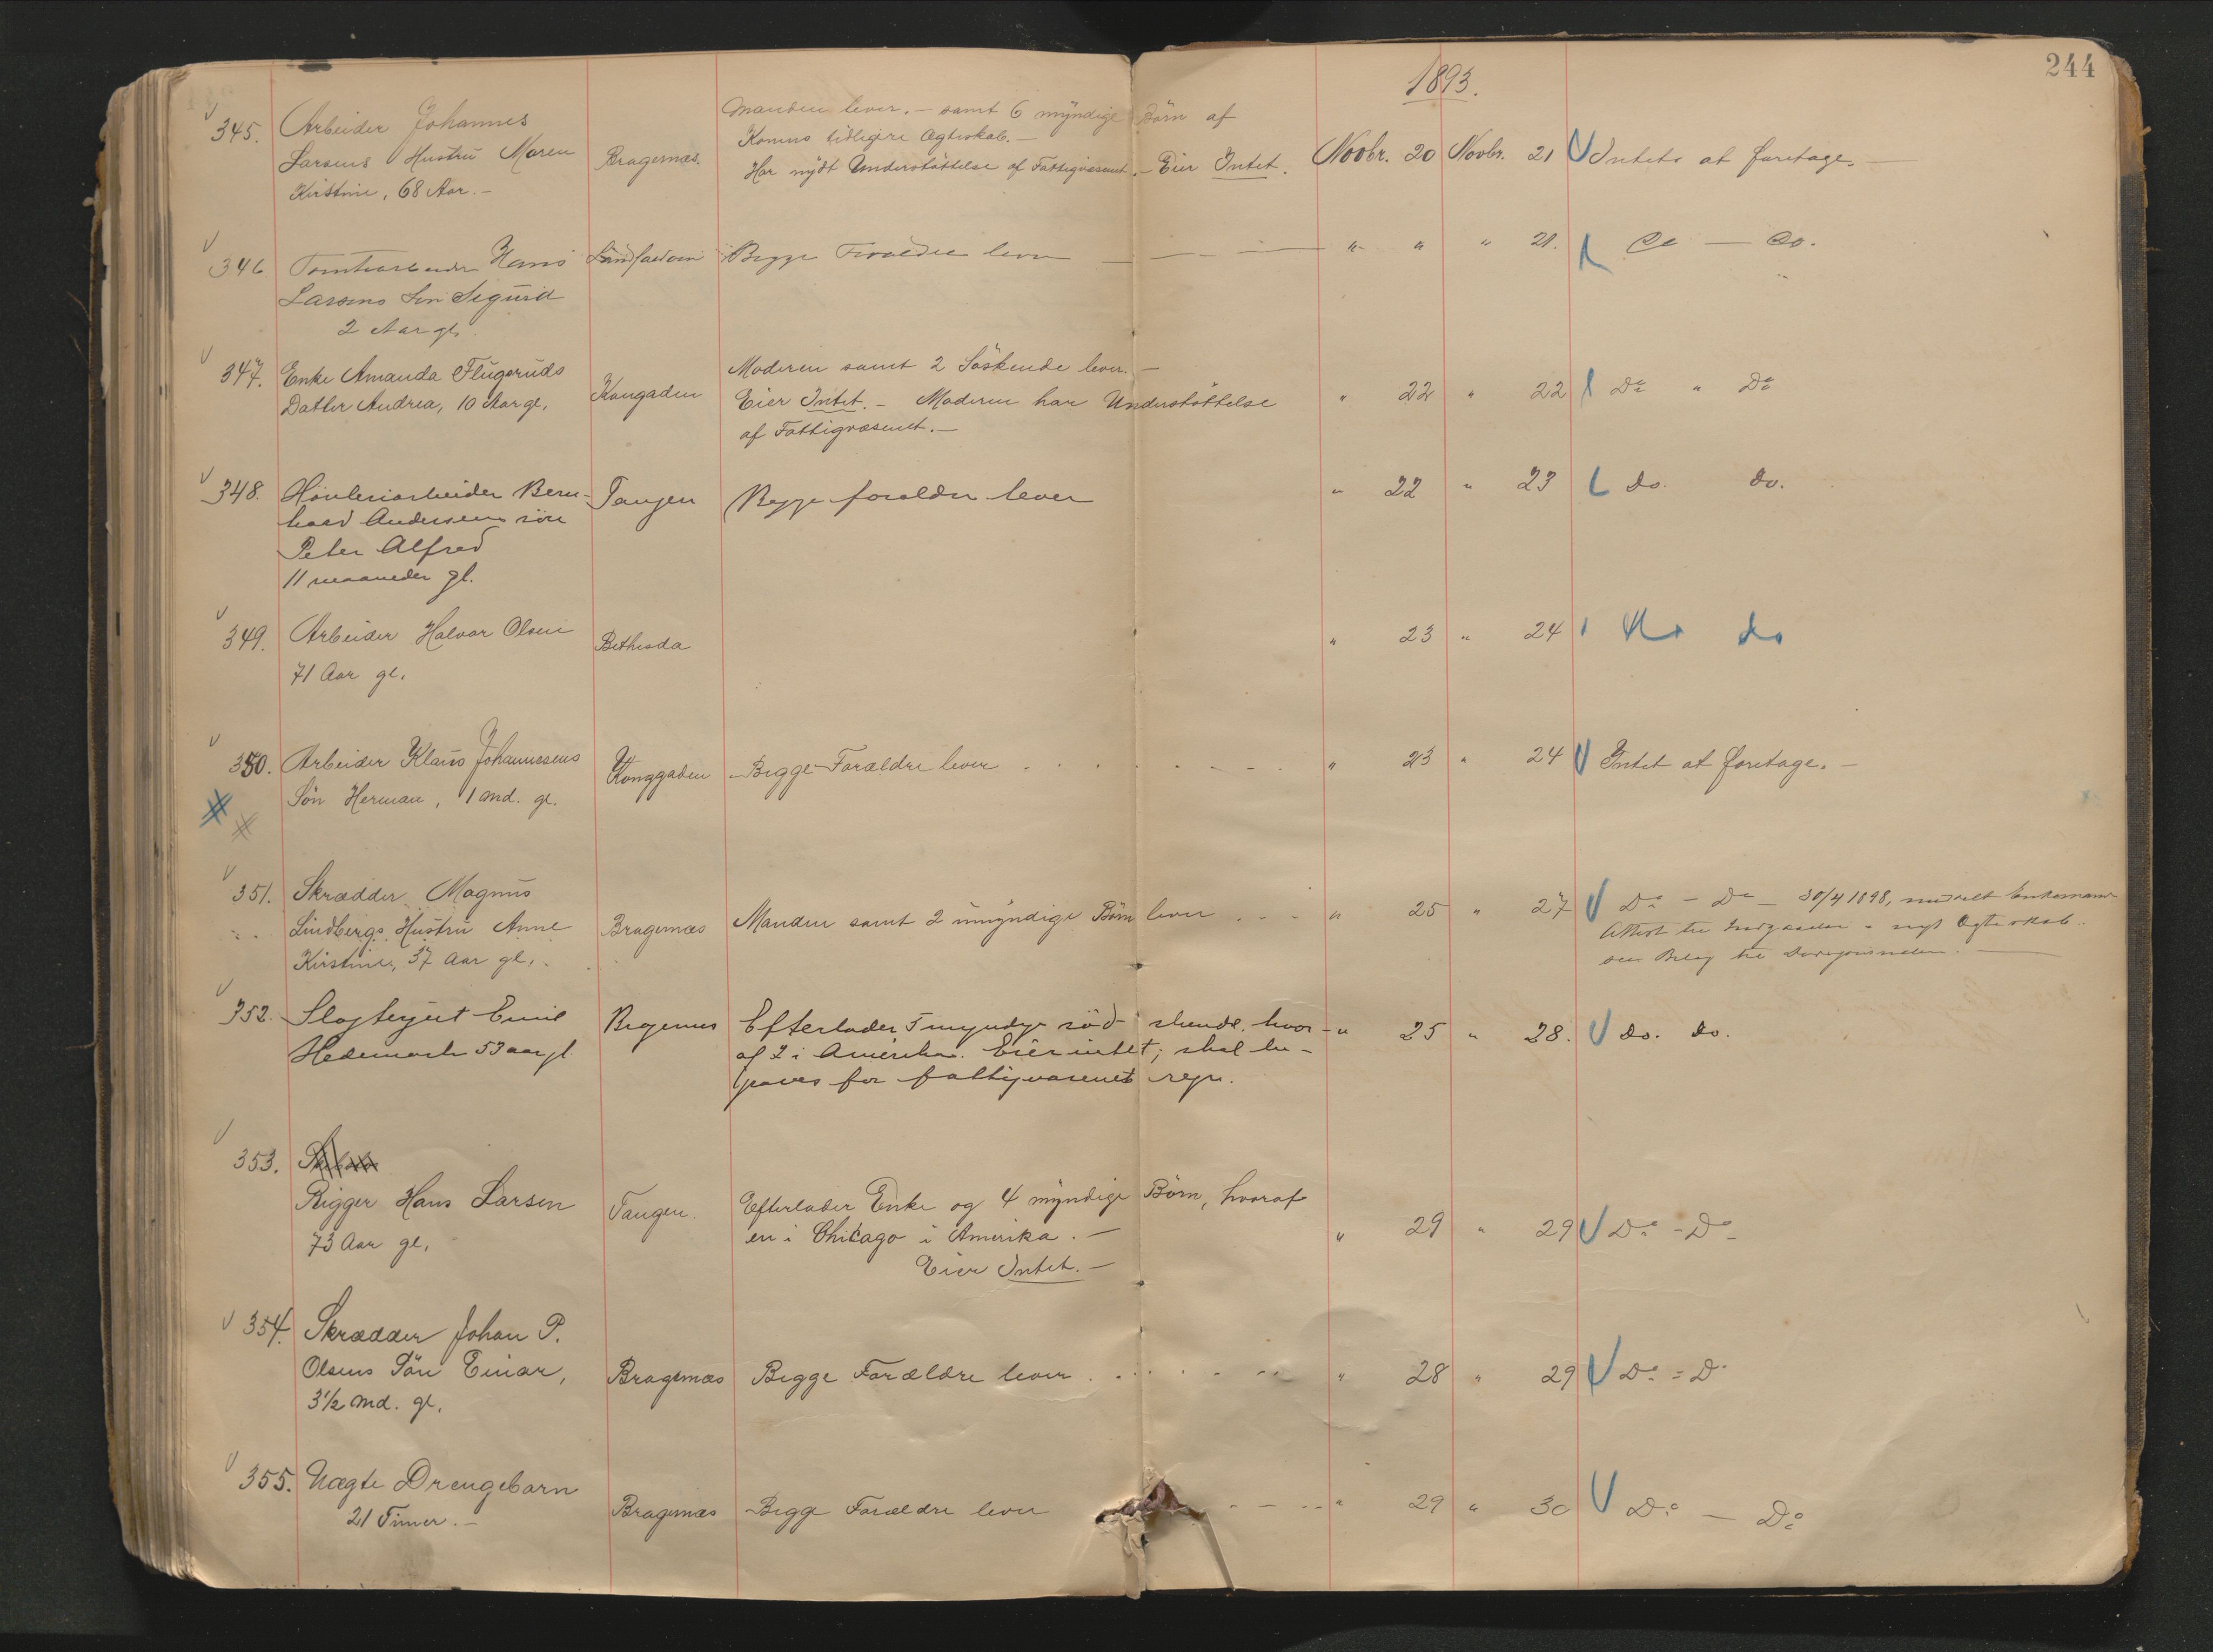 244
1893.
345. Arbeider Johannes
Larsens Hustru Maren
Kirstine, 68 Aar. -
Bragernæs.
Manden lever. - samt 6 myndige Börn af
Konens tidligere Ægteskab. -
Har nydt Understöttelse af Fattigvæsenet. - Eier Intet.
Novbr. 20 Novbr. 21 Intets at foretage.
346 Tomtearbeider Hans
Larsens Sön Sigurd
2 Aar gl.
Begge Forældre lever
" " " 21. do.
347. Enke Amanda Flugeruds
Datter Andrea, 10 Aar gl,
Kongaden
Moderen samt 2 Söskende lever. -
Eier Intet. - Moderen har Understöttelse
af Fattigvæsenet. -
" 22 " 22 Do " Do
348. Hövleriarbeider Bern-
hard Andersens sön
Peter Alfred
11 maaneder gl.
Tangen
Begge forældre lever
" 22 " 23 do. do.
349. Arbeider Halvor Olsen
71 Aar gl.
Bethesda
" 23 " 24 do do
350. Arbeider Klaus Johannesens
Sön Herman, 1 Md. gl.
Konggaden
Begge Forældre lever
" 23 " 24 Intet at foretage. -
351. Skrædder Magnus
Lindbergs Hustru Anne
Kirstine, 37 Aar gl,
Bragernæs
Manden samt 2 umyndige Börn lever
" 25 " 27 Do - Do - 30/4 1898, meddelt Enkemand
Attest til Indgaaelse nyt Ægteskab.
see Bilag til
352. Emil
Hedemark 53 aar gl
Bragernes
Efterlader 5 myndige söd- skende. hvor-
af 2 i Amerika. Eier intet; skal be-
graves for fattigvæsenets regn.
" 25 " 28. do. do.
353.
Rigger Hans Larsen
73 Aar gl,
Tangen.
Efterlader Enke og 4 myndige Börn, hvoraf
en i Chikago i Amerika. -
Eier Intet. -
" 29 " 29 Do - Do
354. Skrædder Johan P.
Olsens Sön Einar,
3 1/2 Md. gl,
Bragernæs
Begge Forældre lever
" 28 " 29 Do = Do
355. Uægte Drengebarn
21 Timer. -
Bragernæs
Begge Forældre lever
" 29 " 30 Do - Do